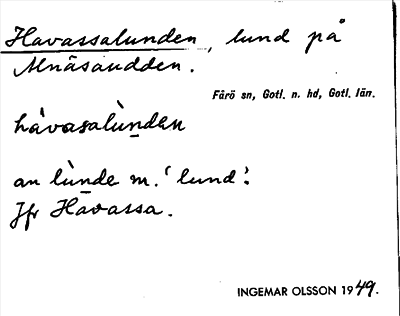 Havassalunden, lund på
Alnäsaudden.
Fårö sn, Gotl. n. hd, Gotl. län.
hávasalùnden
an lùnde m. 'lund'.
Jfr Havassa.
INGEMAR OLSSON 1949.